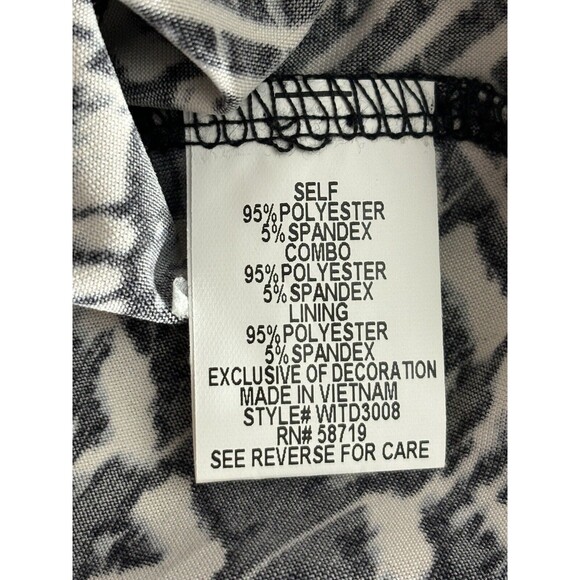 SELF
95% POLYESTER
5% SPANDEX
COMBO
95% POLYESTER
5% SPANDEX
LINING
95% POLYESTER
5% SPANDEX
EXCLUSIVE OF DECORATION
MADE IN VIETNAM
STYLE# WITD3008
RN# 58719
SEE REVERSE FOR CARE